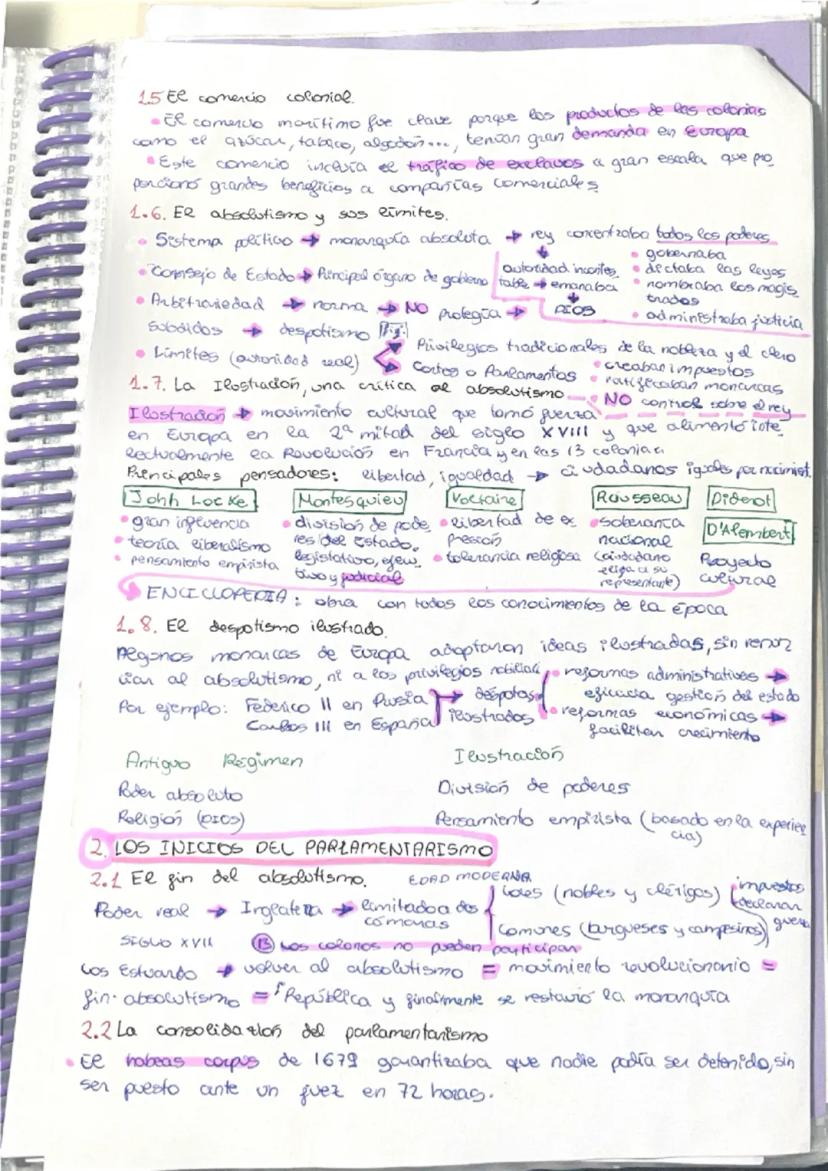 1.5 El comercio colonial.
• El comercio marítimo fue clave porque los productos de las colonias
como el azúcar, tabaco, algodón..., tenían gran demanda en Europa
• Este comercio incluía el tráfico de exclavos a gran escala que pro
porcionó grandes beneficios a compañías comerciales
1.6. El absolutismo y sus límites.
• Sistema político → monarquía absoluta → rey concentraba todos los poderes
• gobernaba
• Consejo de Estado → Principal órgano de gobierno
autoridad incontes
table → emanaba
DIOS
• dictaba las leyes
• nombraba los magis
trados
• administraba justicia
• Arbitrariedad → norma → NO protegía →
Subditos → despotismo
• Límites (autoridad real)
Privilegios tradicionales de la nobleza y el clero
Cortes o Parlamentos
• creaban impuestos
• ratificaban monarcas
• NO control sobre el rey
1.7. La Ilustración, una crítica al absolutismo
Ilustración → movimiento cultural que tomó fuerza
en Europa en la 2ª mitad del siglo XVIII y que alimentó inte
lectualmente la Revolución en Francia y en las 13 colonias
Principales pensadores: libertad, igualdad → ciudadanos iguales por nacimient.
John Locke
• gran influencia
• teoría liberalismo
• pensamiento empirista
Montesquieu
• división de pode
res del Estado.
legislativo, ejecu
tivo y judicial
Voltaire
• libertad de ex
presión
• tolerancia religiosa
Rousseau
• soberanía
nacional
(ciudadano
elige a su
representante)
Diderot
D'Alembert
Proyecto
cultural
ENCICLOPEDIA: obra con todos los conocimientos de la época
1.8. El despotismo ilustrado.
Algunos monarcas de Europa adoptaron ideas ilustradas, sin renun
ciar al absolutismo, ni a los privilegios nobiliar
Por ejemplo: Federico II en Prusia
Carlos III en España
→ déspotas
ilustrados
• reformas administrativas →
eficacia gestión del estado
• reformas económicas →
faciliten crecimiento
Antiguo Régimen
Poder absoluto
Religión (DIOS)
Ilustración
División de poderes
Pensamiento empirista (basado en la experien
cia)
2. LOS INICIOS DEL PARLAMENTARISMO
2.1 El fin del absolutismo. EDAD MODERNA
Poder real → Inglaterra → limitado a dos
cámaras
Lores (nobles y clérigos)
Comunes (burgueses y campesinos)
impuestos
declaran
guerra
SIGLO XVII
13 Los colonos no pueden participar
Los Estuardo → volver al absolutismo = movimiento revolucionario =
fin absolutismo = República y finalmente se restauró la monarquía
2.2 La consolidación del parlamentarismo
• El habeas corpus de 1679 garantizaba que nadie podía ser detenido, sin
ser puesto ante un juez en 72 horas.